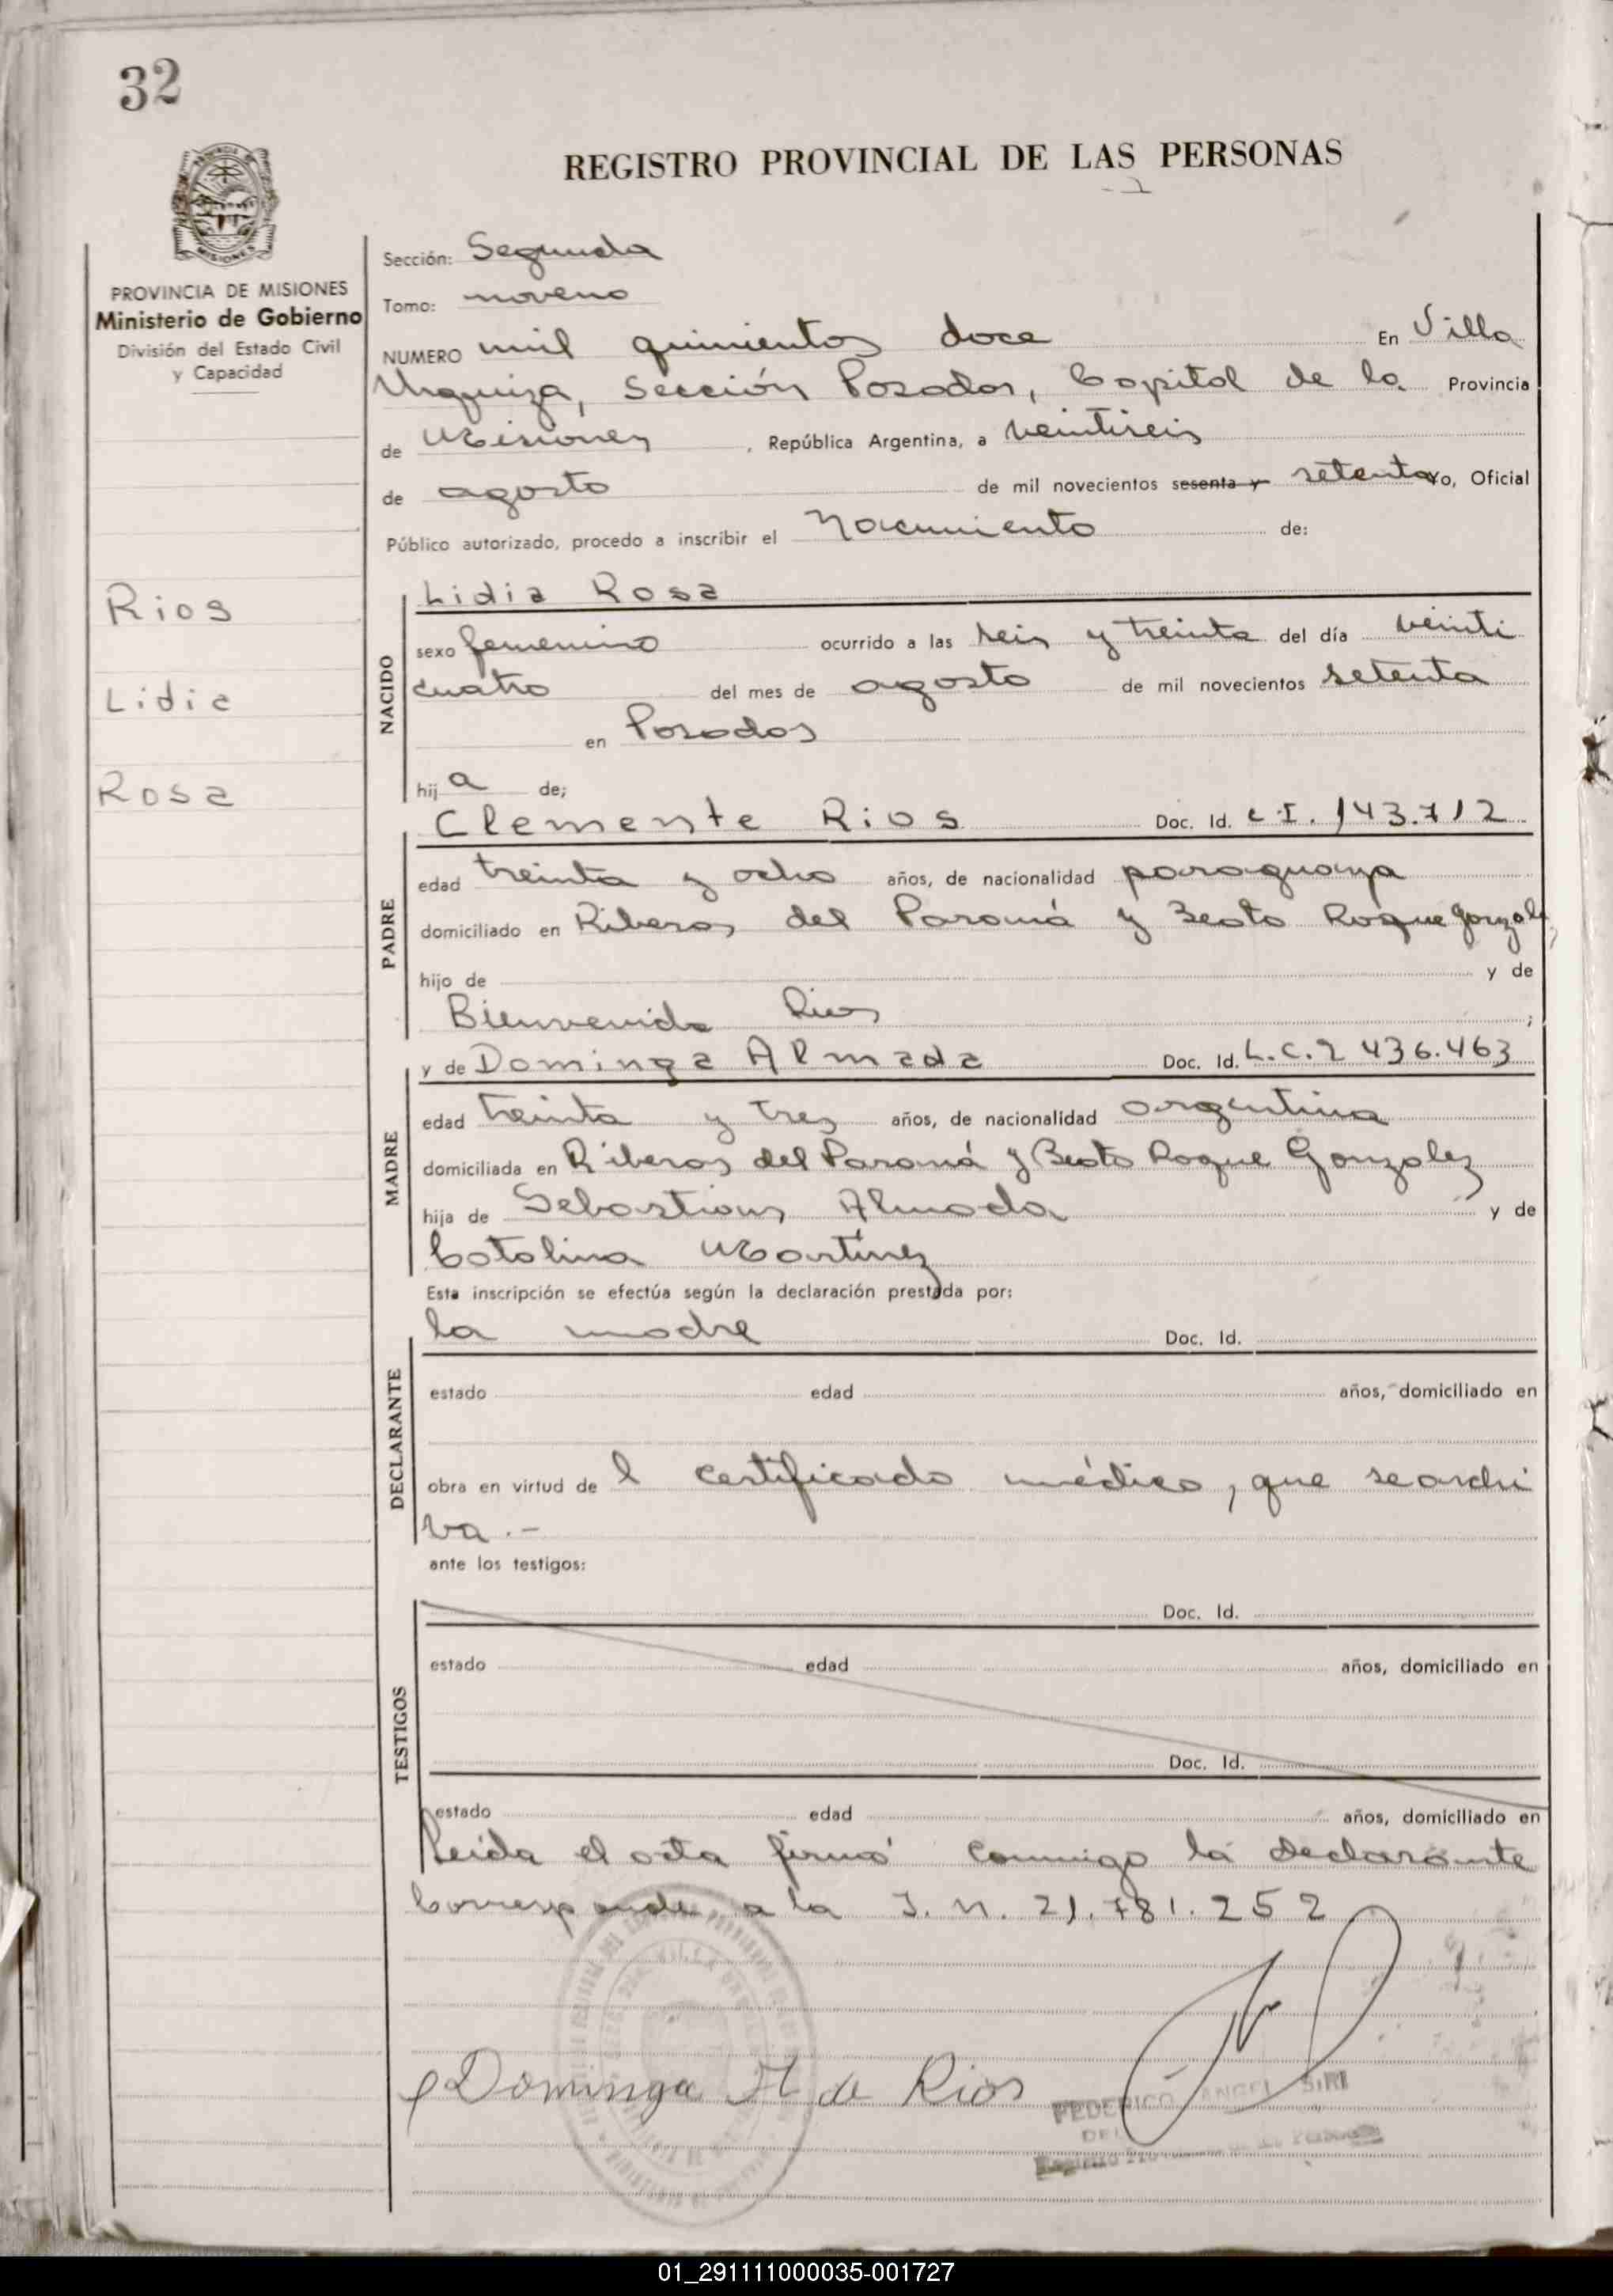 32
REGISTRO PROVINCIAL DE LAS PERSONAS
PROVINCIA DE MISIONES
Ministerio de Gobierno
División del Estado Civil
y Capacidad
Rios
Lidia
Rosa
Sección: Segunda
Tomo: noveno
NUMERO mil quinientos doce En Villa
Urquiza, Sección Posadas, Capital de la Provincia
de Misiones, República Argentina, a veintiseis
de agosto de mil novecientos sesenta y setenta Yo, Oficial
Público autorizado, procedo a inscribir el Nacimiento de:
NACIDO
Lidia Rosa
sexo femenino ocurrido a las seis y treinta del día veinti
cuatro del mes de agosto de mil novecientos setenta
en Posadas
hija de;
PADRE
Clemente Rios Doc. Id. C.I. 143.712
edad treinta y ocho años, de nacionalidad paraguaya
domiciliado en Riberas del Paraná y Beato Roque Gonzalez
hijo de y de
Bienvenida Rios ;
MADRE
y de Dominga Almada Doc. Id. L.C. 2 436.463
edad treinta y tres años, de nacionalidad argentina
domiciliada en Riberas del Paraná y Beato Roque Gonzalez
hija de Sebastian Almada y de
Catalina Martinez
Esta inscripción se efectúa según la declaración prestada por:
DECLARANTE
la madre Doc. Id.
estado edad años, domiciliado en
obra en virtud de l certificado médico, que se archi
va.-
ante los testigos:
TESTIGOS
Doc. Id.
estado edad años, domiciliado en
Doc. Id.
estado edad años, domiciliado en
Leida el acta firmó conmigo la declarante
Corresponde a la I. N. 21.781.252
Dominga A de Rios
FEDERICO ANGEL SIRI
01_291111000035-001727